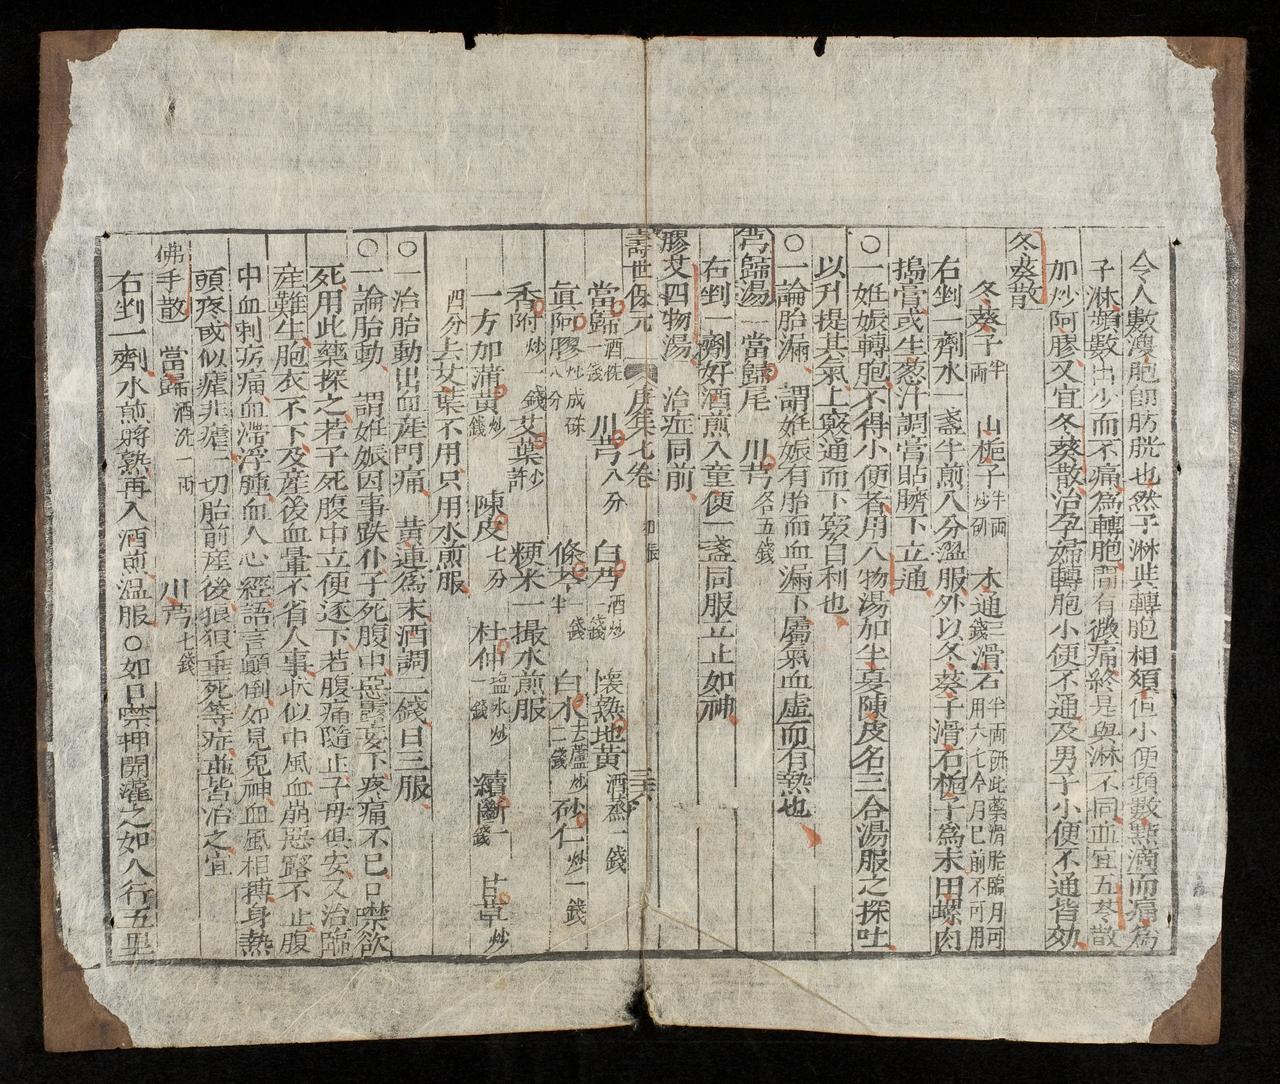 令人數溲胞卽膀胱也然子淋些轉胞相類但小便頻數點滴而痛爲
子淋頻數出少而不痛爲轉胞間有微痛終是與淋不同並宜五苓散
加炒阿膠又宜冬葵散治孕婦轉胞小便不通及男子小便不通皆効
冬葵散
冬葵子半兩 山梔子半兩炒研 木通三錢 滑石半兩研此藥滑胎臨月可用六七个月已前不可用
右剉一劑水一盞半煎八分溫服外以冬葵子滑石梔子爲末田螺肉
搗膏或生葱汁調膏貼臍下立通
○一姙娠轉胞不得小便者用八物湯加半夏陳皮名三合湯服之探吐
以升提其氣上竅通而下竅自利也
○一論胎漏 謂姙娠有胎而血漏下屬氣血虛而有熱也
芎歸湯 當歸尾 川芎各五錢
右剉一劑好酒煎入童便一盞同服立止如神
膠艾四物湯 治症同前
壽世保元 庚集七卷 初脹 三六
當歸酒洗一錢 川芎八分 白芍酒炒一錢 懷熟地黃酒蒸一錢
眞阿膠炒成珠八分 條芩一錢半 白朮去蘆炒二錢 砂仁炒一錢
香附炒一錢 艾葉炒許 粳米一撮水煎服
一方加蒲黃炒錢 陳皮七分 杜仲塩水炒一錢 續斷一錢 甘草炒
四分去艾葉不用只用水煎服
○一治胎動出血産門痛 黃連爲末酒調一錢日三服
○一論胎動 謂姙娠因事跌仆子死腹中惡露妄下疼痛不已口噤欲
死用此藥探之若子死腹中立便逐下若腹痛隨止子母俱安又治臨
産難生胞衣不下及産後血暈不省人事狀似中風血崩惡露不止腹
中血刺疞痛血滯浮腫血入心經語言顚倒如見鬼神血風相搏身熱
頭疼或似瘧非瘧一切胎前産後狼狽垂死等症並皆治之宜
佛手散 當歸酒洗一兩 川芎七錢
右剉一劑水煎將熟再入酒煎溫服○如口噤押開灌之如人行五里